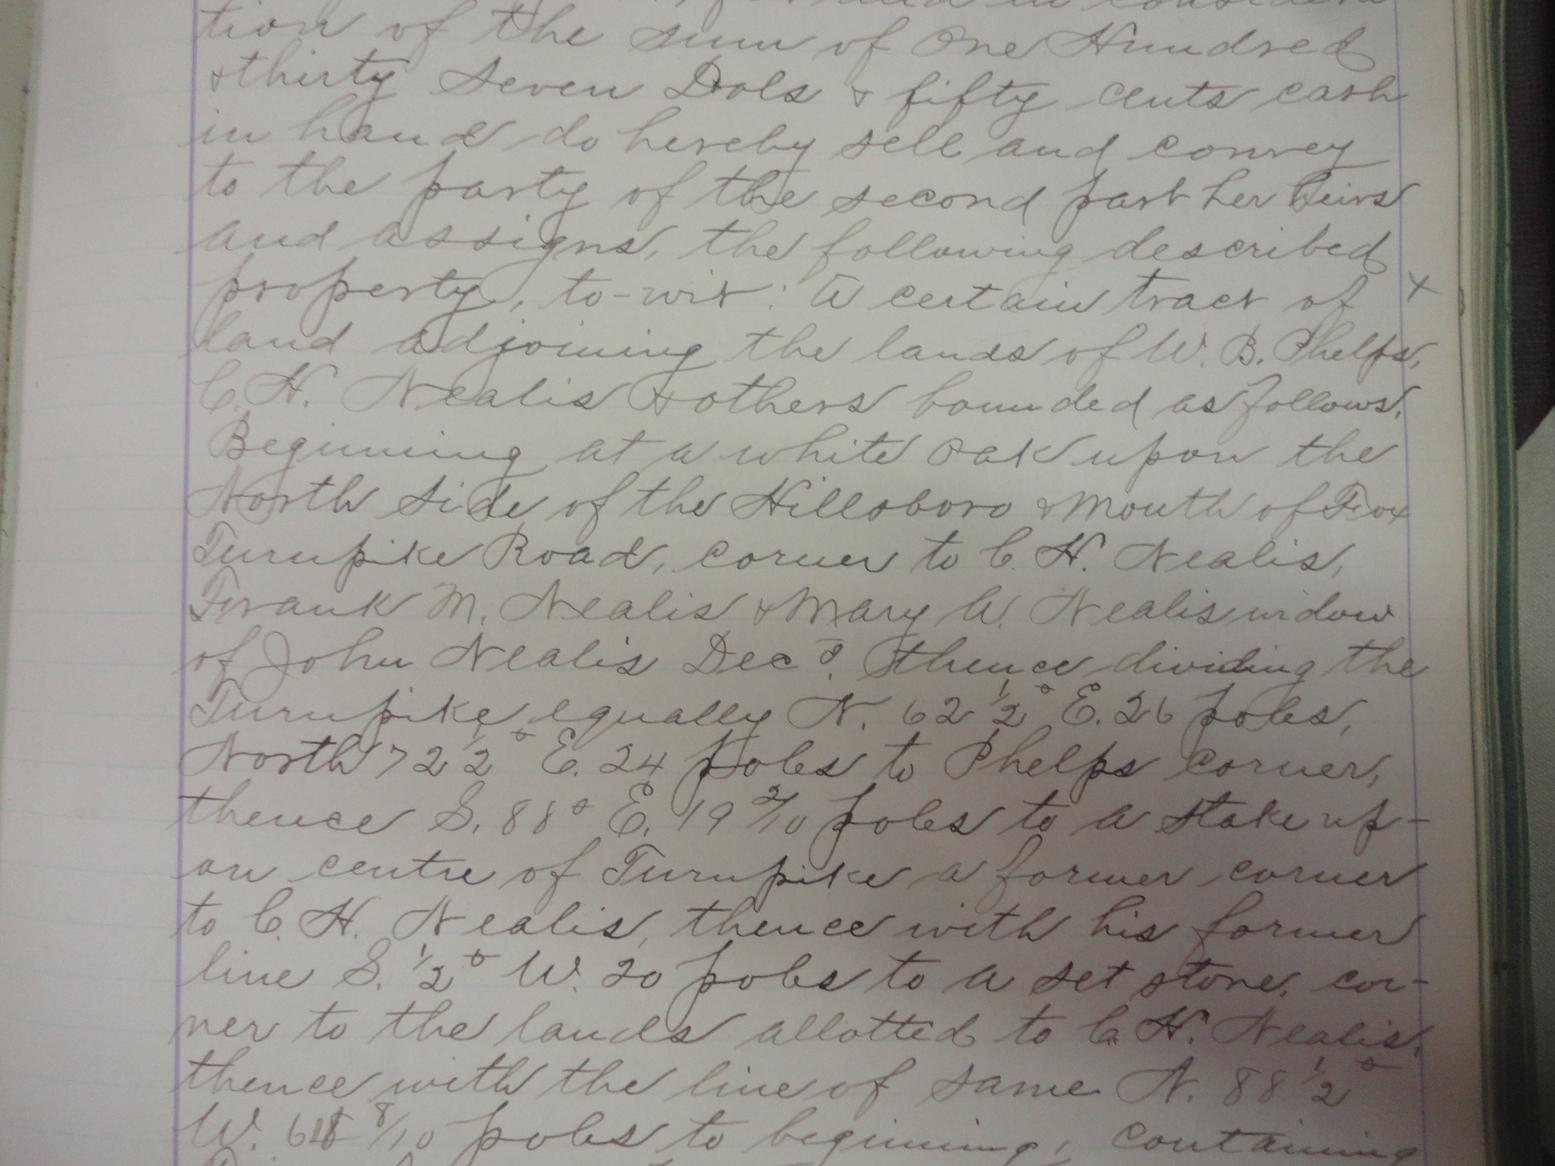 in considera
tion of the sum of One Hundred
& thirty Seven Dols & fifty cents cash
in hand do hereby sell and convey
to the party of the second part her heirs
and assigns, the following described
property, to-wit: A certain tract of x
land adjoining the lands of W. B. Phelps,
C. H. Nealis & others bounded as follows,
Beginning at a white oak upon the
North Side of the Hillsboro & Mouth of Fox
Turnpike Road, corner to C. H. Nealis,
Frank M. Nealis & Mary A. Nealis widow
of John Nealis Decd. thence dividing the
Turnpike equally N. 62 1/2° E. 26 poles,
North 72 1/2° E. 24 poles to Phelps corner,
thence S. 88° E. 19 2/10 poles to a stake up-
on centre of Turnpike a former corner
to C. H. Nealis, thence with his former
line S. 1/2° W. 20 poles to a set stone, cor-
ner to the lands allotted to C. H. Nealis,
thence with the line of same N. 88 1/2°
W. 8/10 poles to beginning, containing